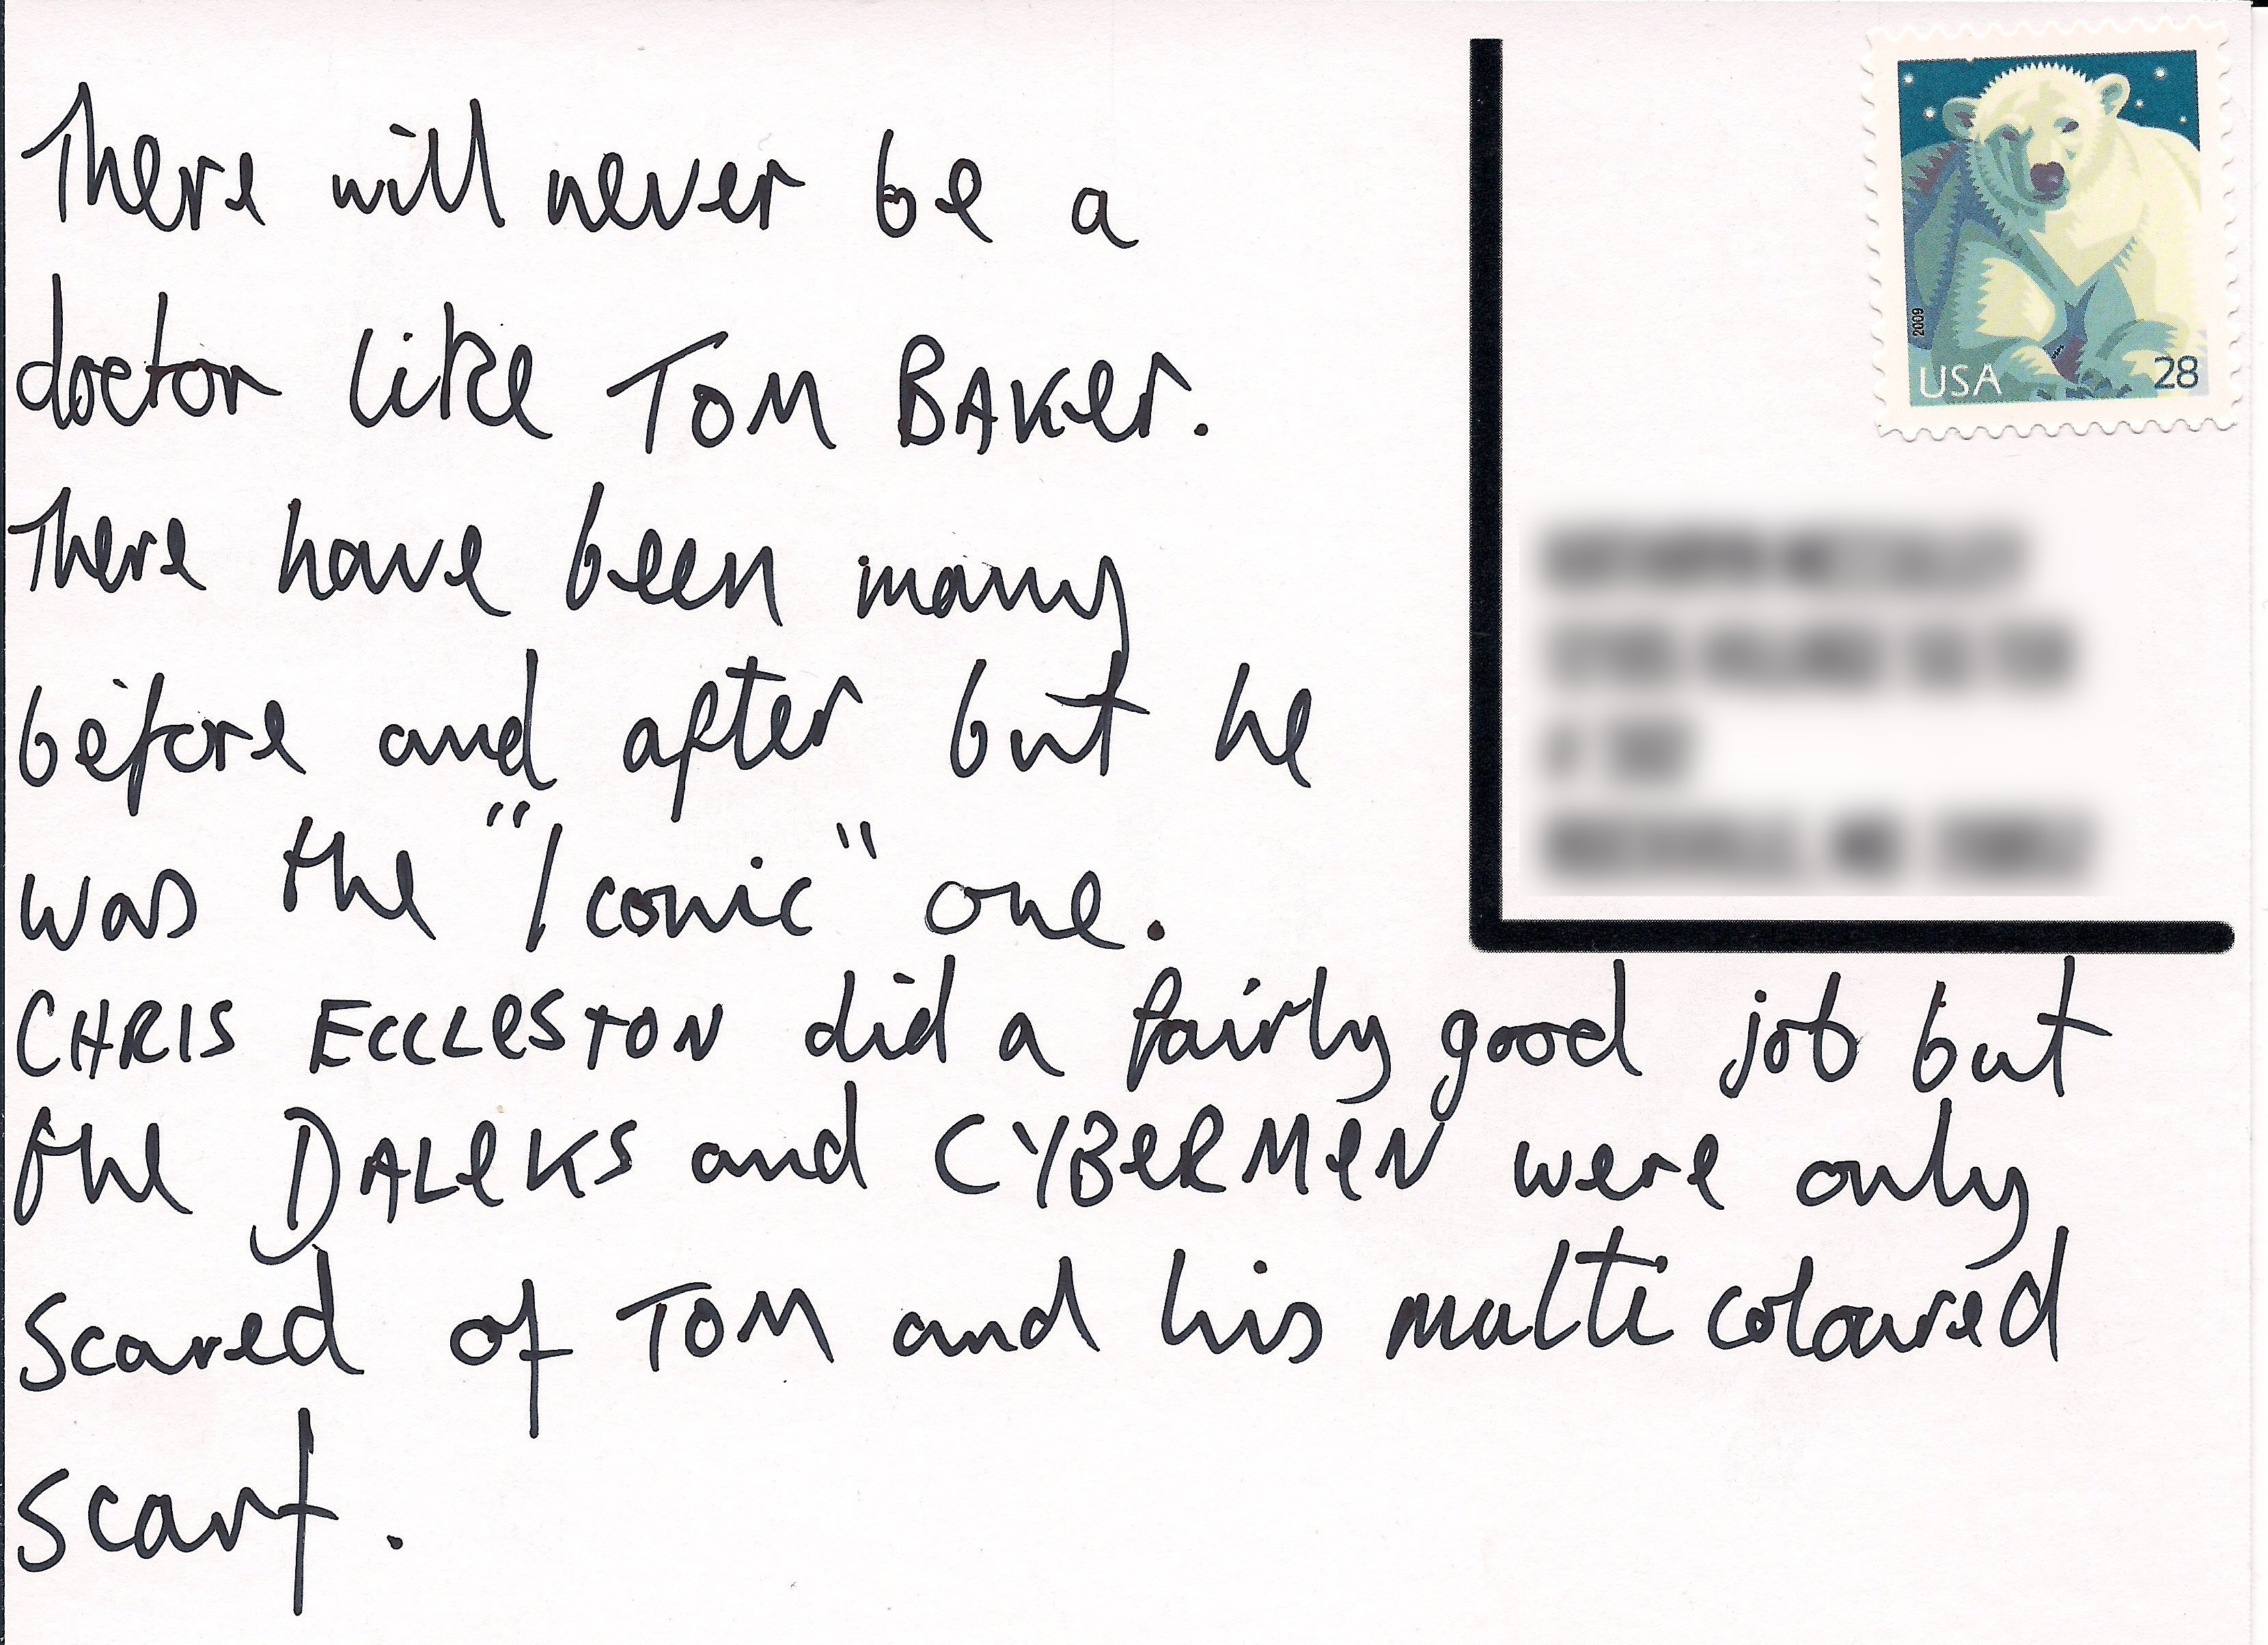 There will never be a
doctor like TOM BAKer.
There have been many
before and after but he
was the "Iconic" one.
CHRIS ECCLeSTON did a fairly good job but
the DALeKS and CYBeRMeN were only
scared of TOM and his multi coloured
scarf.
2009
USA 28